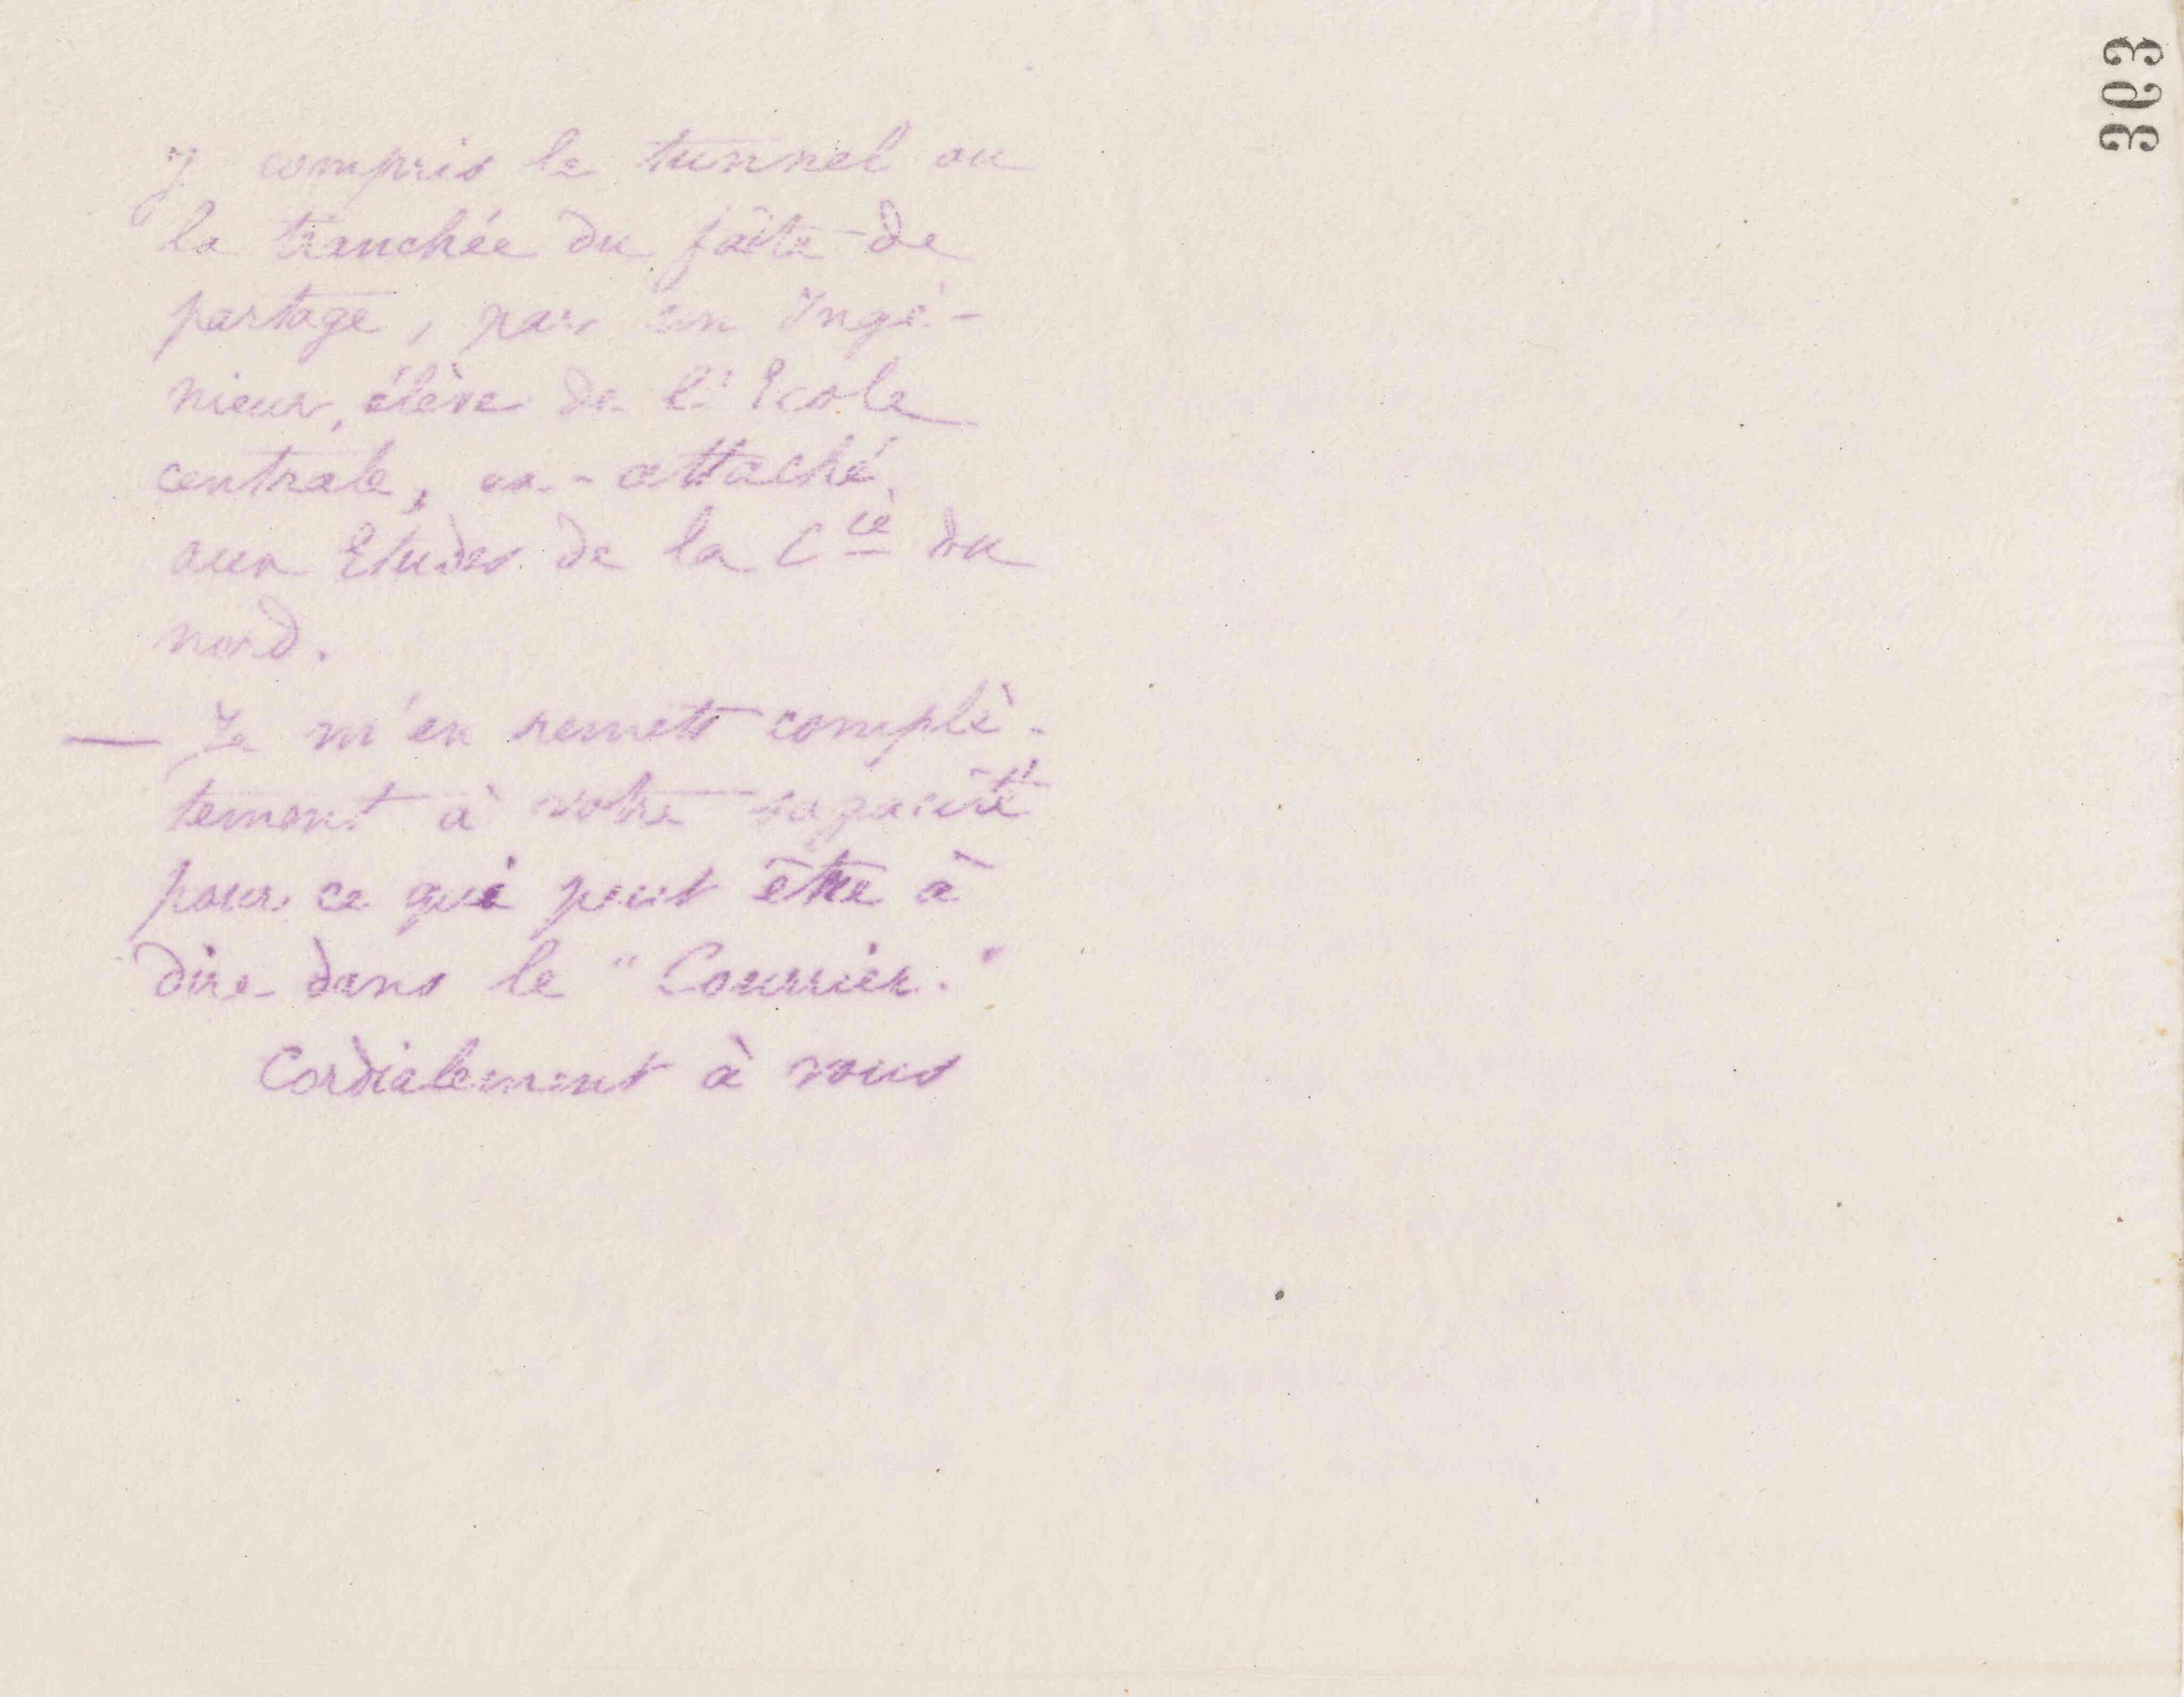 363
y compris le tunnel ou
la tranchée du faîte de
partage, par un Ingé-
nieur, élève de l'Ecole
centrale, ex-attaché
aux Etudes de la Cie du
nord.
— Je m'en remets complè-
tement à votre sagacité
pour ce qui peut être à
dire dans le "Courrier."
Cordialement à vous